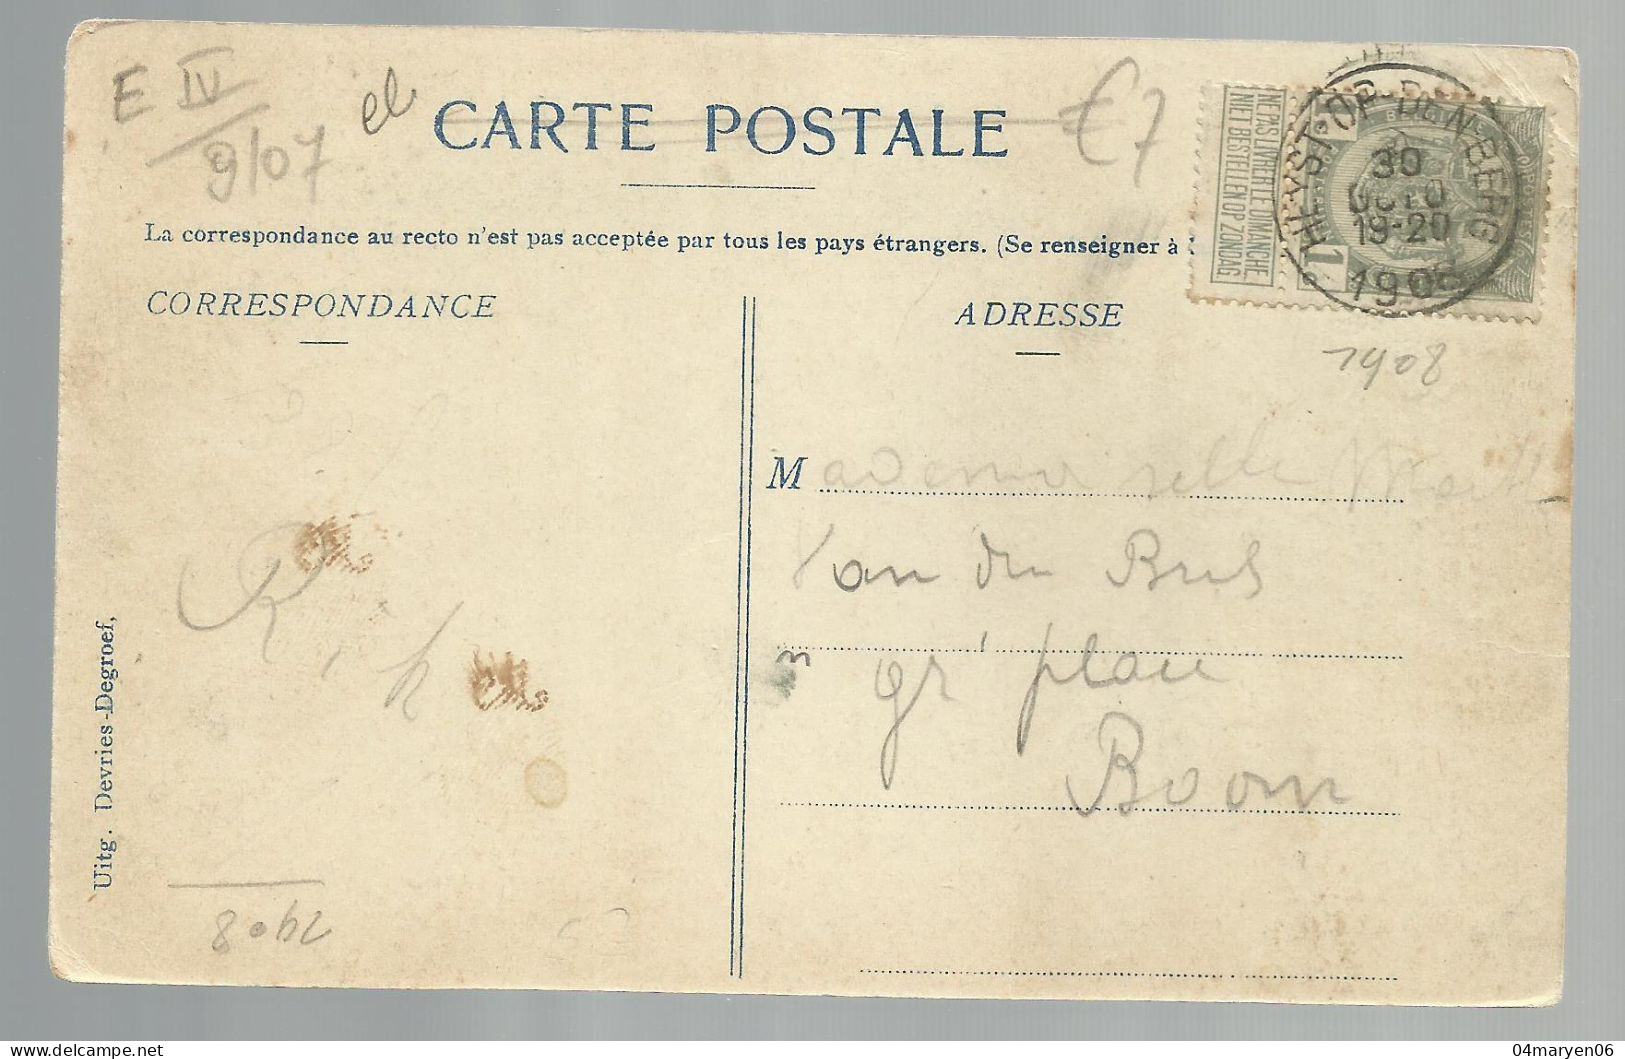 E IV
9/07
el
CARTE POSTALE
€7
NE PAS LIVRER LE DIMANCHE
NIET BESTELLEN OP ZONDAG
1
HEYST-OP-DEN-BERG
30
OCTO
19-20
1908
La correspondance au recto n'est pas acceptée par tous les pays étrangers. (Se renseigner à
CORRESPONDANCE
ADRESSE
1908
Mademoiselle
Van den
gr plau
Boom
Uitg. Devries-Degroef,
1908
04maryen06